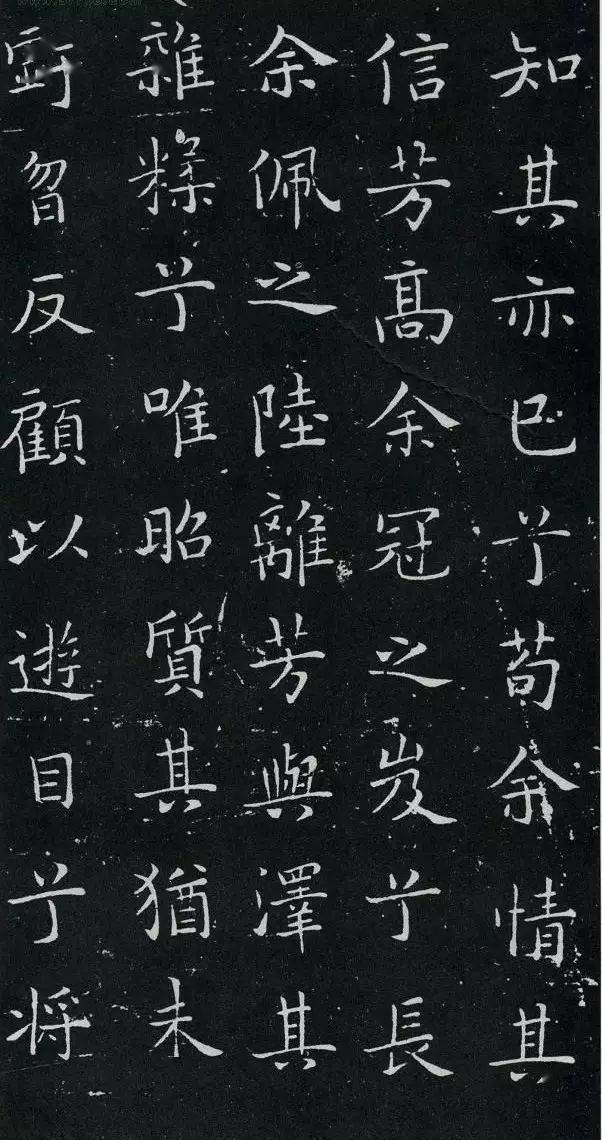 知其亦已兮苟余情其
信芳高余冠之岌兮長
余佩之陸離芳與澤其
雜糅兮唯昭質其猶未
虧忽反顧以遊目兮将